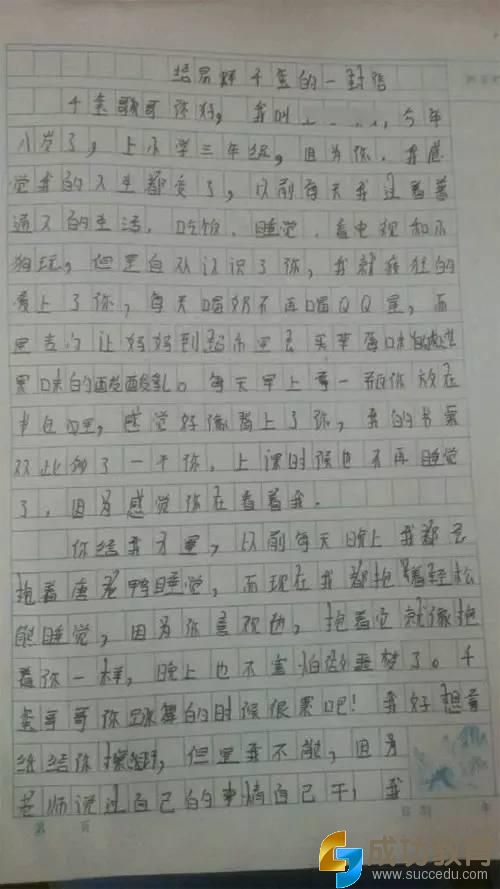 给易烊千玺的一封信
千玺歌哥你好，我叫......，今年
八岁了，上小学三年级，因为你，我感
觉我的人生都变了，以前每天我过着普
通人的生活，吃饭、睡觉、看电视和小
狗玩，但是自从认识了你，我就疯狂的
爱上了你，每天喝奶不再喝QQ星，而
是去让妈妈到超市里去买苹果味的
果味的酸酸乳。每天早上拿一瓶你放在
书包里，感觉好像背上了你，我的书桌
从此刻了一千你，上课时候也不再睡觉
了，因为感觉你在看着我.
你给我力里，以前每天晚上我都会
抱着唐老鸭睡觉，而现在我都抱着轻松
熊睡觉，因为你喜欢他，抱着它就像抱
着你一样，晚上也不害怕恶梦了。千
玺哥哥你跳舞的时候很累吧！我好想拿
纸给你擦，但是我不能，因为
老师说过自己的事情自己干，我
第 页
成功教育
www.succedu.com